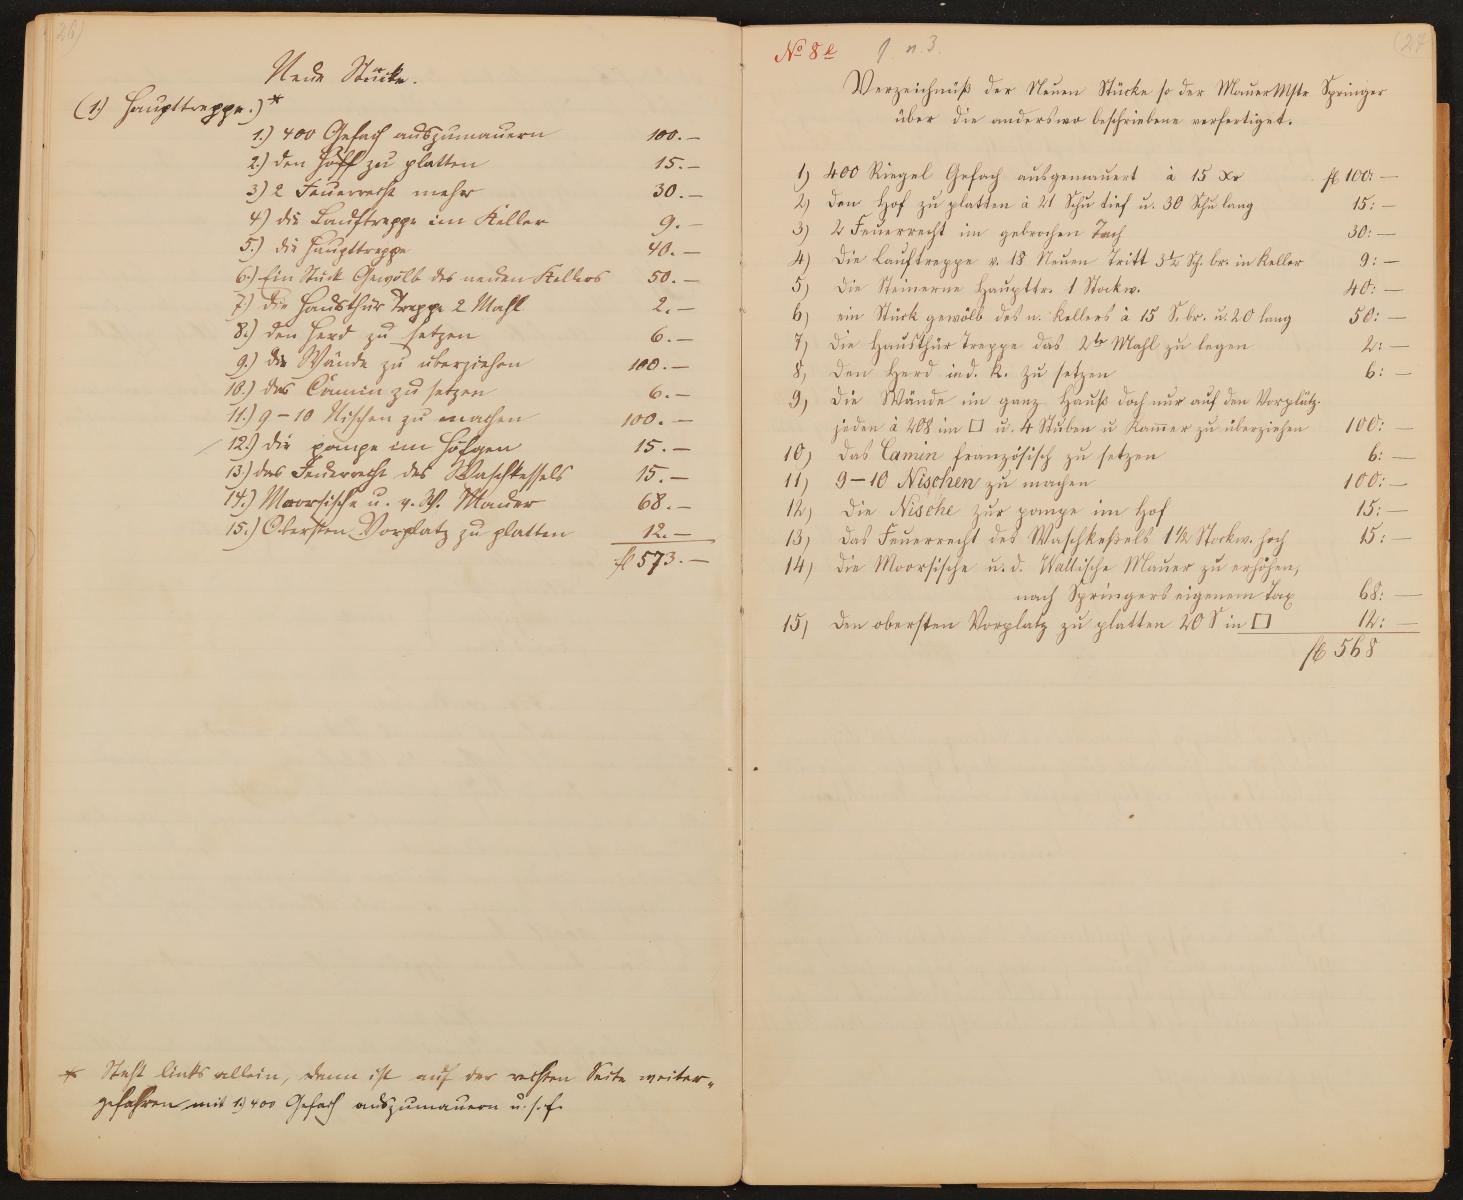 26)
Neue Stücke.
(1.) Haupttreppe.)*
1.) 400 Gefach auszumauern 100.—
2.) den Hoff zu platten 15.—
3.) 2 Feuerrecht mehr 30.—
4.) die Lauftreppe im Keller 9.—
5.) die Haupttreppe 40.—
6.) Ein Stück Gewölb des neuen Kellers 50.—
7.) die Hausthür Treppe 2 Mahl 2.—
8.) den Herd zu setzen 6.—
9.) die Wände zu überziehen 100.—
10.) das Camin zu setzen 6.—
11.) 9–10 Nischen zu machen 100.—
12.) die pompe im Höfgen 15.—
13.) das Feuerrecht des Waschkessels 15.—
14.) Moorsische u. v. W. Mauer 68.—
15.) Obersten Vorplatz zu platten 12.—
fl 573.—
* Steht links allein, dann ist auf der rechten Seite weiter„
gefahren mit 1.) 400 Gefach auszumauern u.s.f.
(27
No 8 n. 3.
Verzeichnüß der Neuen Stücke so der MauerMstr Springer
über die anderswo beschriebene verfertiget.
1) 400 Riegel Gefach ausgemauert à 15 Xr fl 100: —
2) den Hof zu platten à 21 Schu tief u. 30 Schu lang 15: —
3) 2 Feuerrecht im gebrochen Tach 30: —
4) Die Lauftreppe v. 18 Neuen Tritt 3½ Sch. br. in Keller 9: —
5) Die Steinerne Haupttr. 1 Stockw. 40: —
6) ein Stück gewölb des n. Kellers à 15 S. br. u. 20 lang 50: —
7) Die Hausthür Treppe das 2te Mahl zu legen 2: —
8) Den Herd in d. K. zu setzen 6: —
9) Die Wände im ganz Hauß doch nur auf den Vorplätz.
jeden à 208 im □ u. 4 Stuben u Kam̅er zu überziehen 100: —
10) Das Camin französisch zu setzen 6: —
11) 9–10 Nischen zu machen 100: —
12) Die Nische zur pompe im Hof 15: —
13) Das Feuerrecht des Waschkeßels 1½ Stockw. hoch 15: —
14) Die Moorsische u. d. Wallische Mauer zu erhöhen,
nach Springers eigenem Tax 68: —
15) Den obersten Vorplatz zu platten 20 S in □ 12: —
fl 568